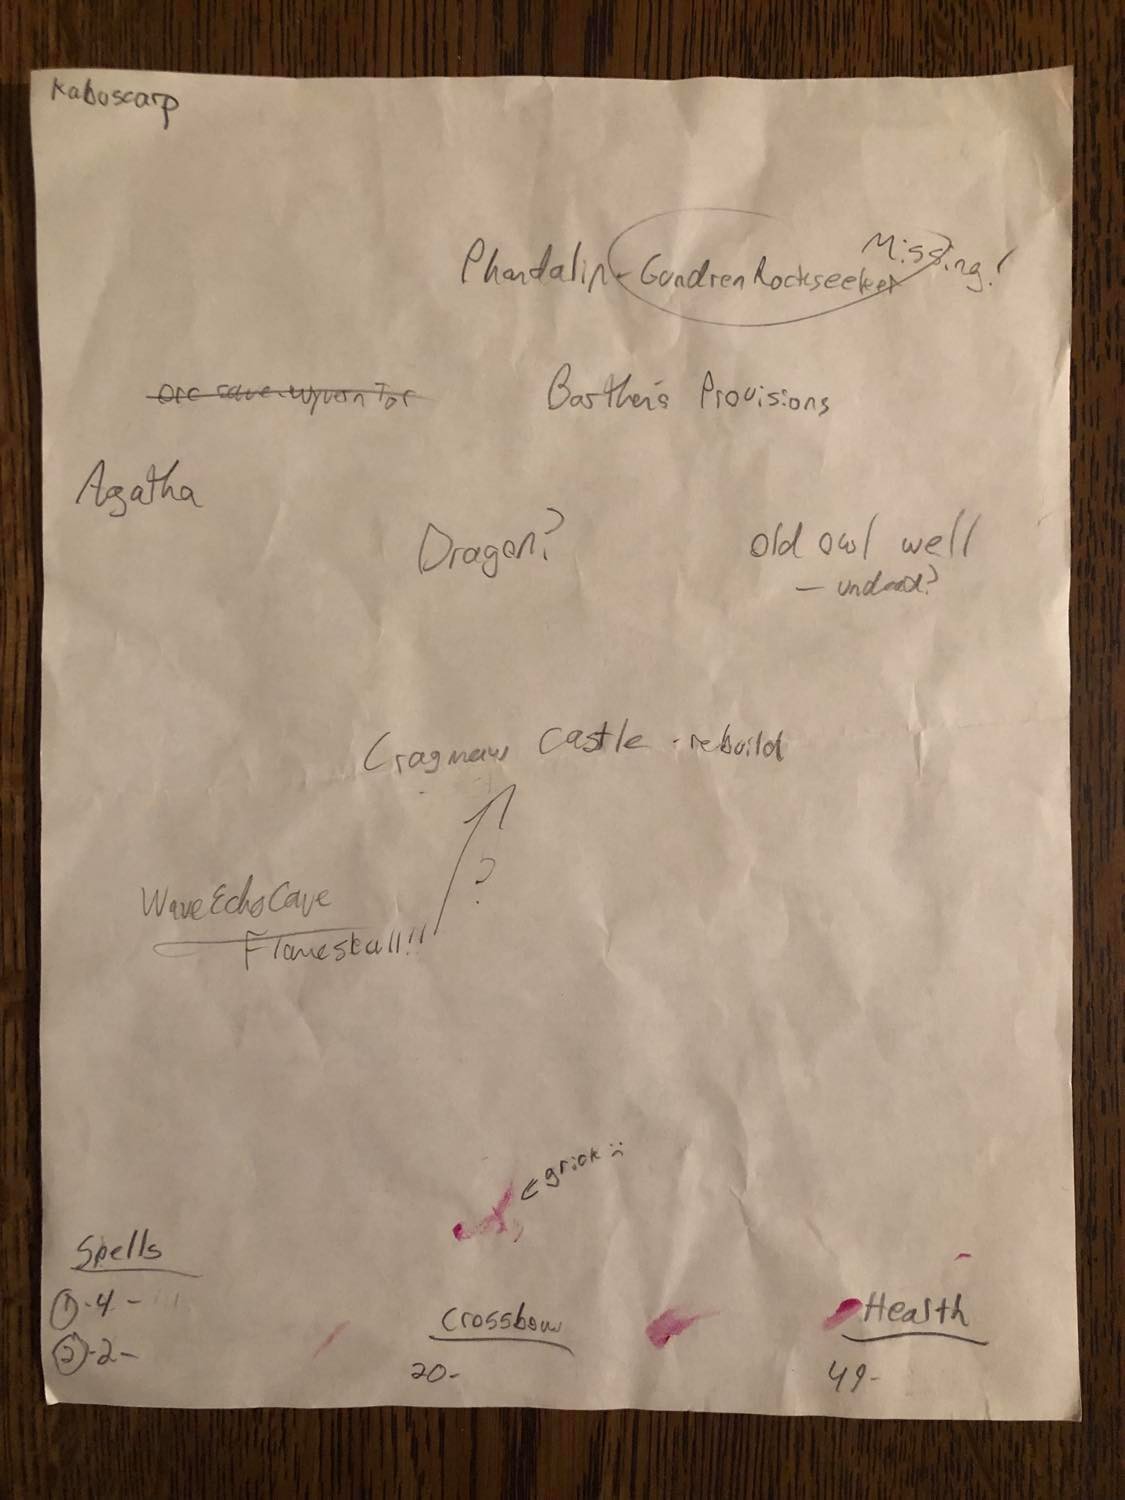 Kaboscarp
Missing!
Phandalin - Gundren Rockseeker
orc cave - Wyvern Tor
Barthen's Provisions
Agatha
Dragon?
old owl well
— undead?
Cragmaw Castle - rebuild
?
Wave Echo Cave
Flameskull!!
< grick :(
Spells
① - 4 -
② - 2 -
Crossbow
20 -
Health
49 -